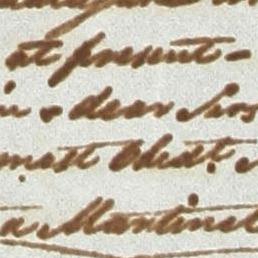 at present -
& dear Sirs
most Obedt.
a Martinel